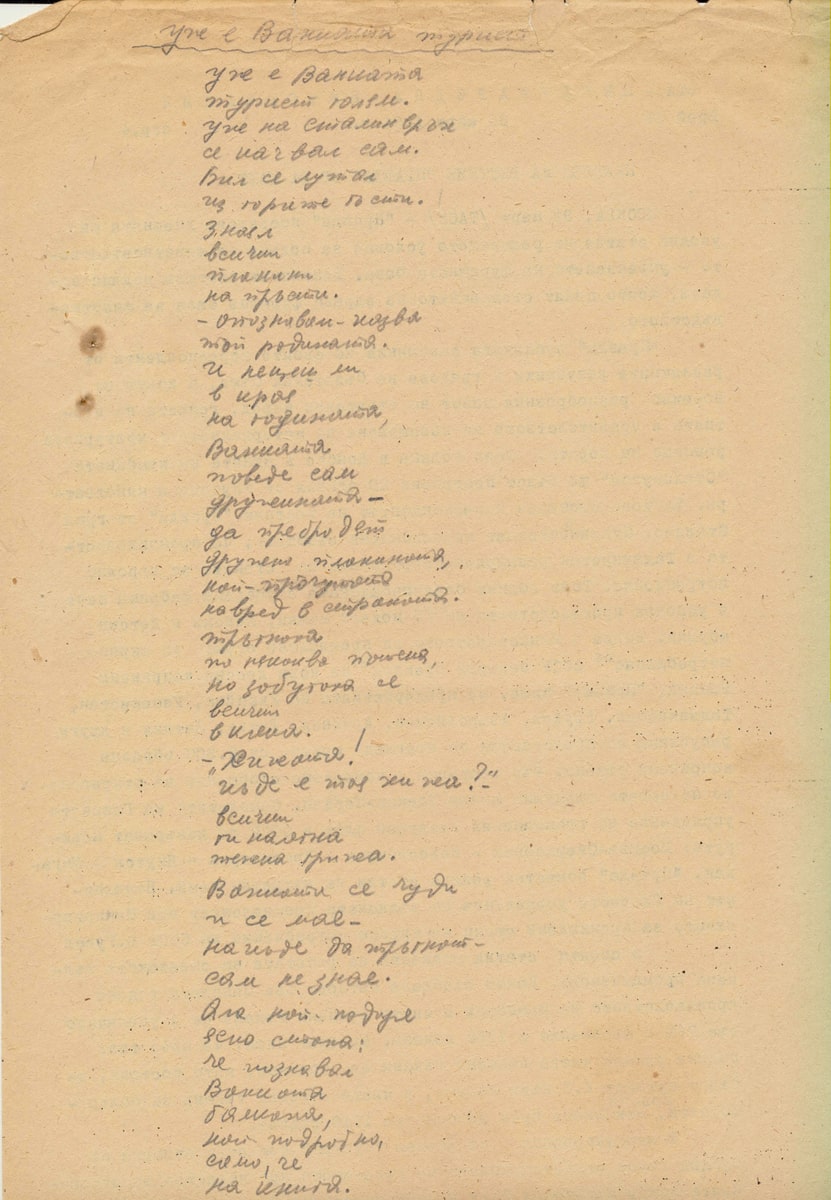 Уж е Ванката турист
Уж е Ванката
турист голям.
Уж на Сталин връх
се качвал сам.
Бил се лутал
из горите гъсти.
Знаел
всички
планини
на пръсти.
– Опознавам – казва
той родината.
И нещеш ли
в края
на годината,
Ванката
поведе сам
дружината –
да пребродят
дружно планината,
най-прочутата
навред в страната.
Тръгнаха
по някаква пътека,
но забутаха се
всички
в клека.
– „Хижата!
Къде е тая хижа?“
Всички
ги налегна
тежка грижа.
Ванката се чуди
и се мае –
накъде да тръгнат –
сам не знае.
Ала най-подире
ясно стана:
че познавал
Ванката
балкана,
най подробно,
само, че
на книга.